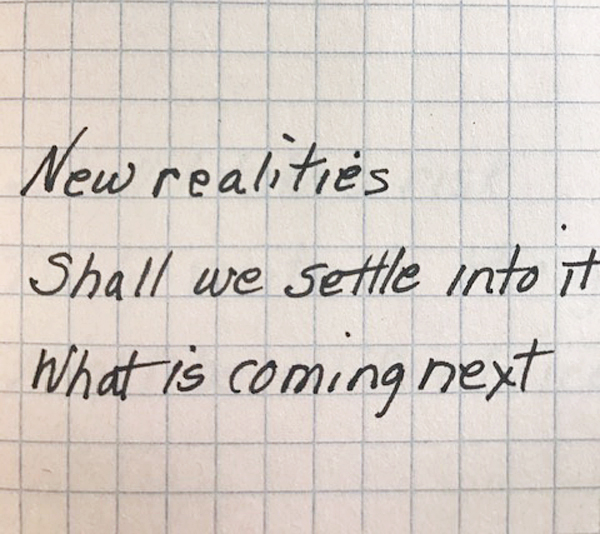 New realities
Shall we settle into it
What is coming next